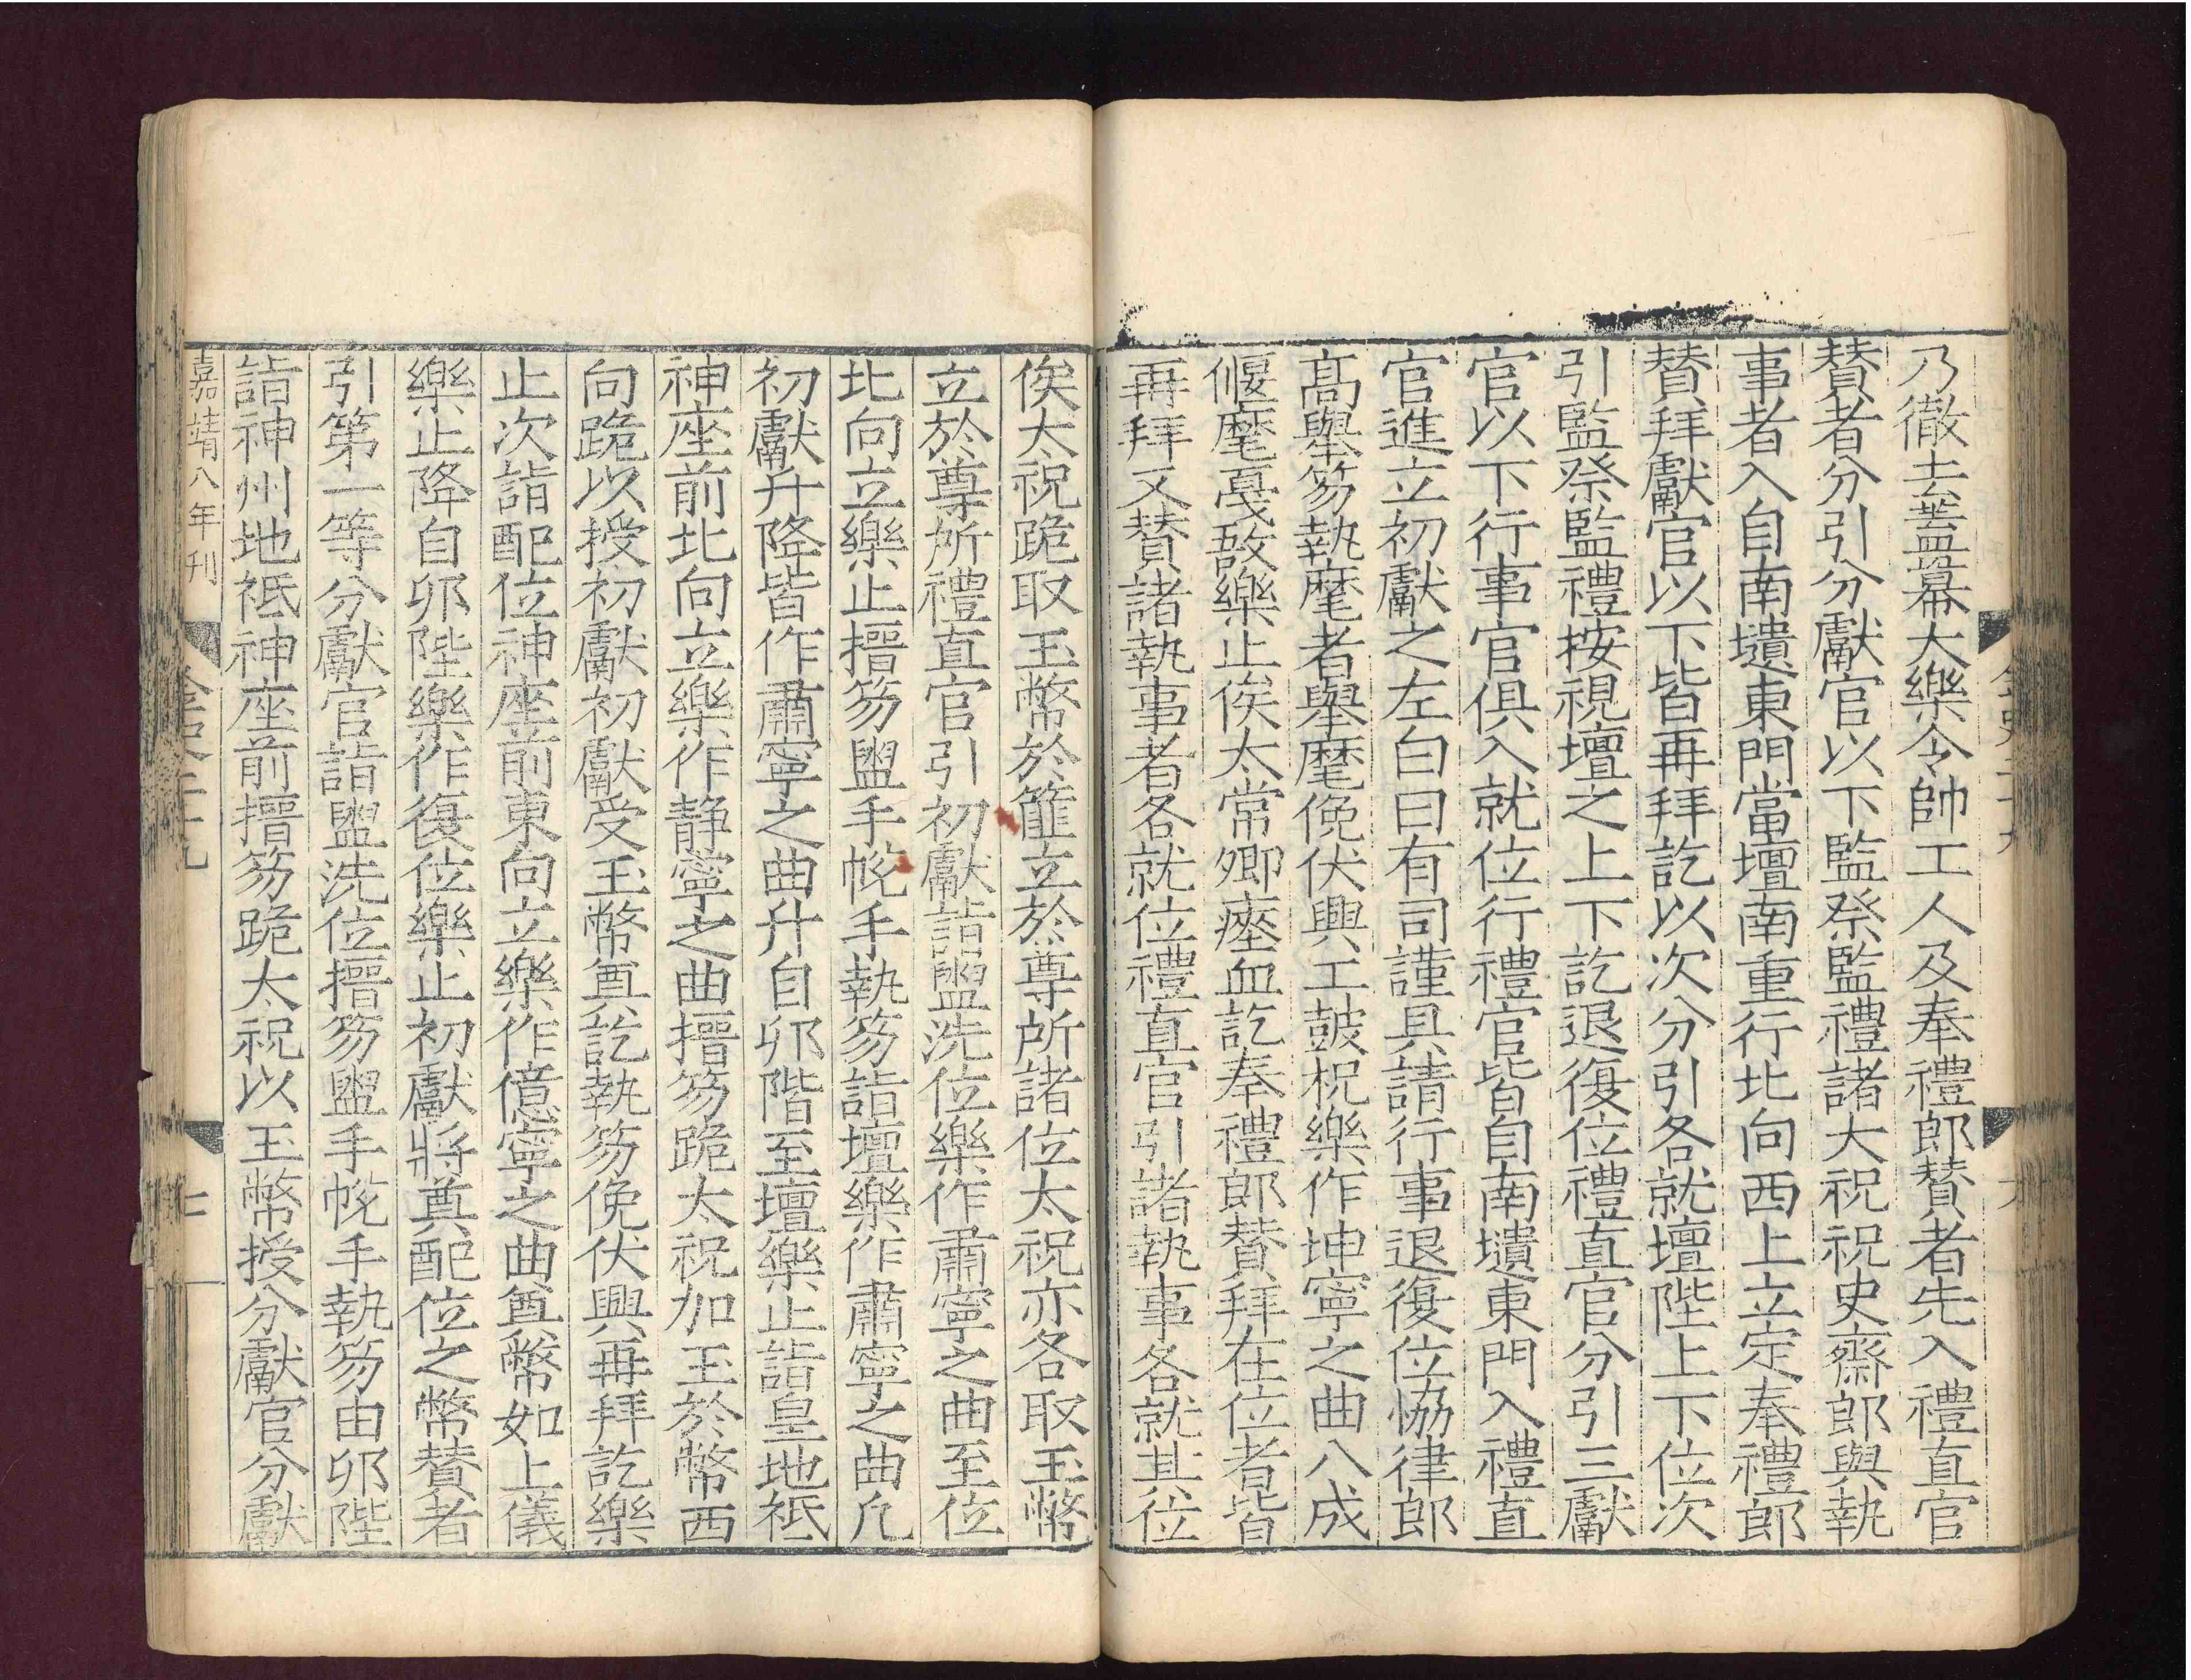 乃徹去蓋羃大樂令帥工人及奉禮郎贊者先入禮直官
贊者分引分獻官以下監祭監禮諸大祝祝史齋郎與執
事者入自南壝東門當壇南重行北向西上立定奉禮郎
贊拜獻官以下皆再拜訖以次分引各就壇陛上下位次
引監祭監禮按視壇之上下訖退復位禮直官分引三獻
官以下行事官俱入就位行禮官皆自南壝東門入禮直
官進立初獻之左白曰有司謹具請行事退復位協律郎
高舉笏執麾者舉麾俛伏興工鼓柷樂作坤寧之曲八成
偃麾戞敔樂止俟太常卿瘞血訖奉禮郎贊拜在位者皆
再拜又贊諸執事者各就位禮直官引諸執事各就其位
俟太祝跪取玉幣於篚立於尊所諸位太祝亦各取玉幣
立於尊所禮直官引初獻詣盥洗位樂作肅寧之曲至位
北向立樂止搢笏盥手帨手執笏詣壇樂作肅寧之曲凡
初獻升降皆作肅寧之曲升自卯階至壇樂止詣皇地祗
神座前北向立樂作静寧之曲搢笏跪太祝加玉於幣西
向跪以授初獻初獻受玉幣奠訖執笏俛伏興再拜訖樂
止次詣配位神座前東向立樂作億寧之曲奠幣如上儀
樂止降自卯陛樂作復位樂止初獻將奠配位之幣贊者
引第一等分獻官詣盥洗位搢笏盥手帨手執笏由卯陛
詣神州地祗神座前搢笏跪太祝以玉幣授分獻官分獻
嘉靖八年刊